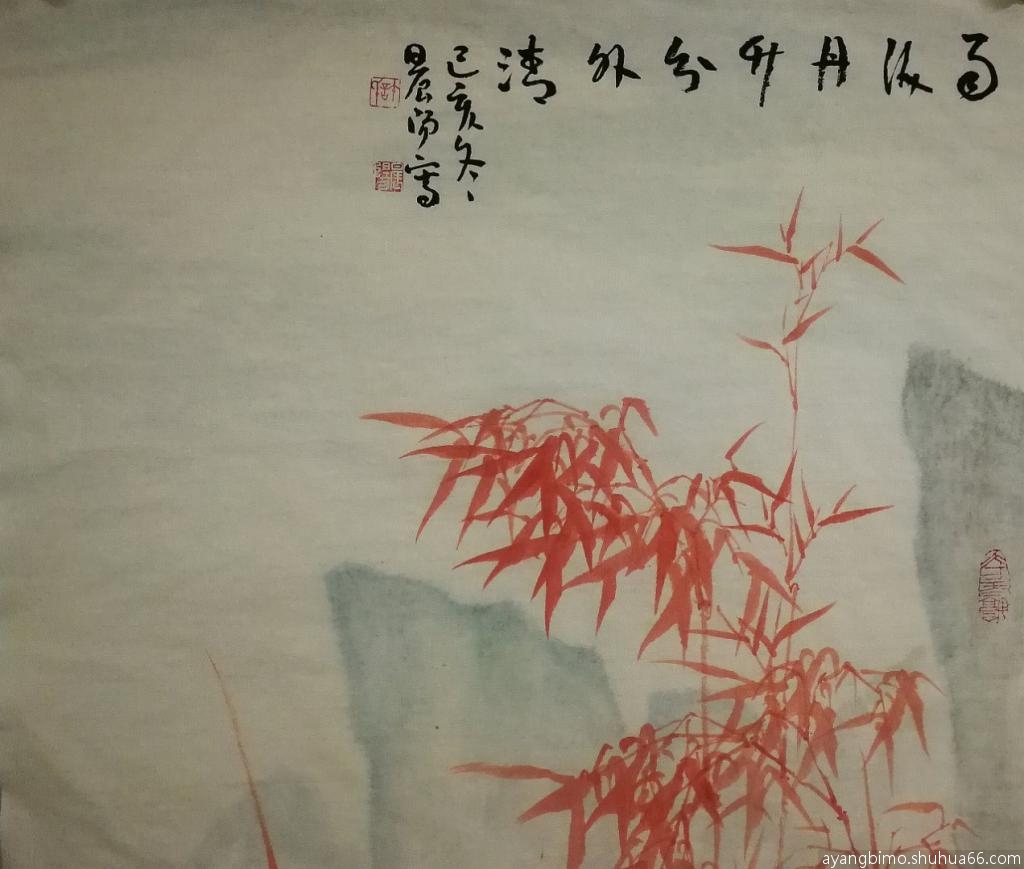 雨後丹竹分外清
己亥冬
晨阳寫
ayangbimo.shuhua66.com